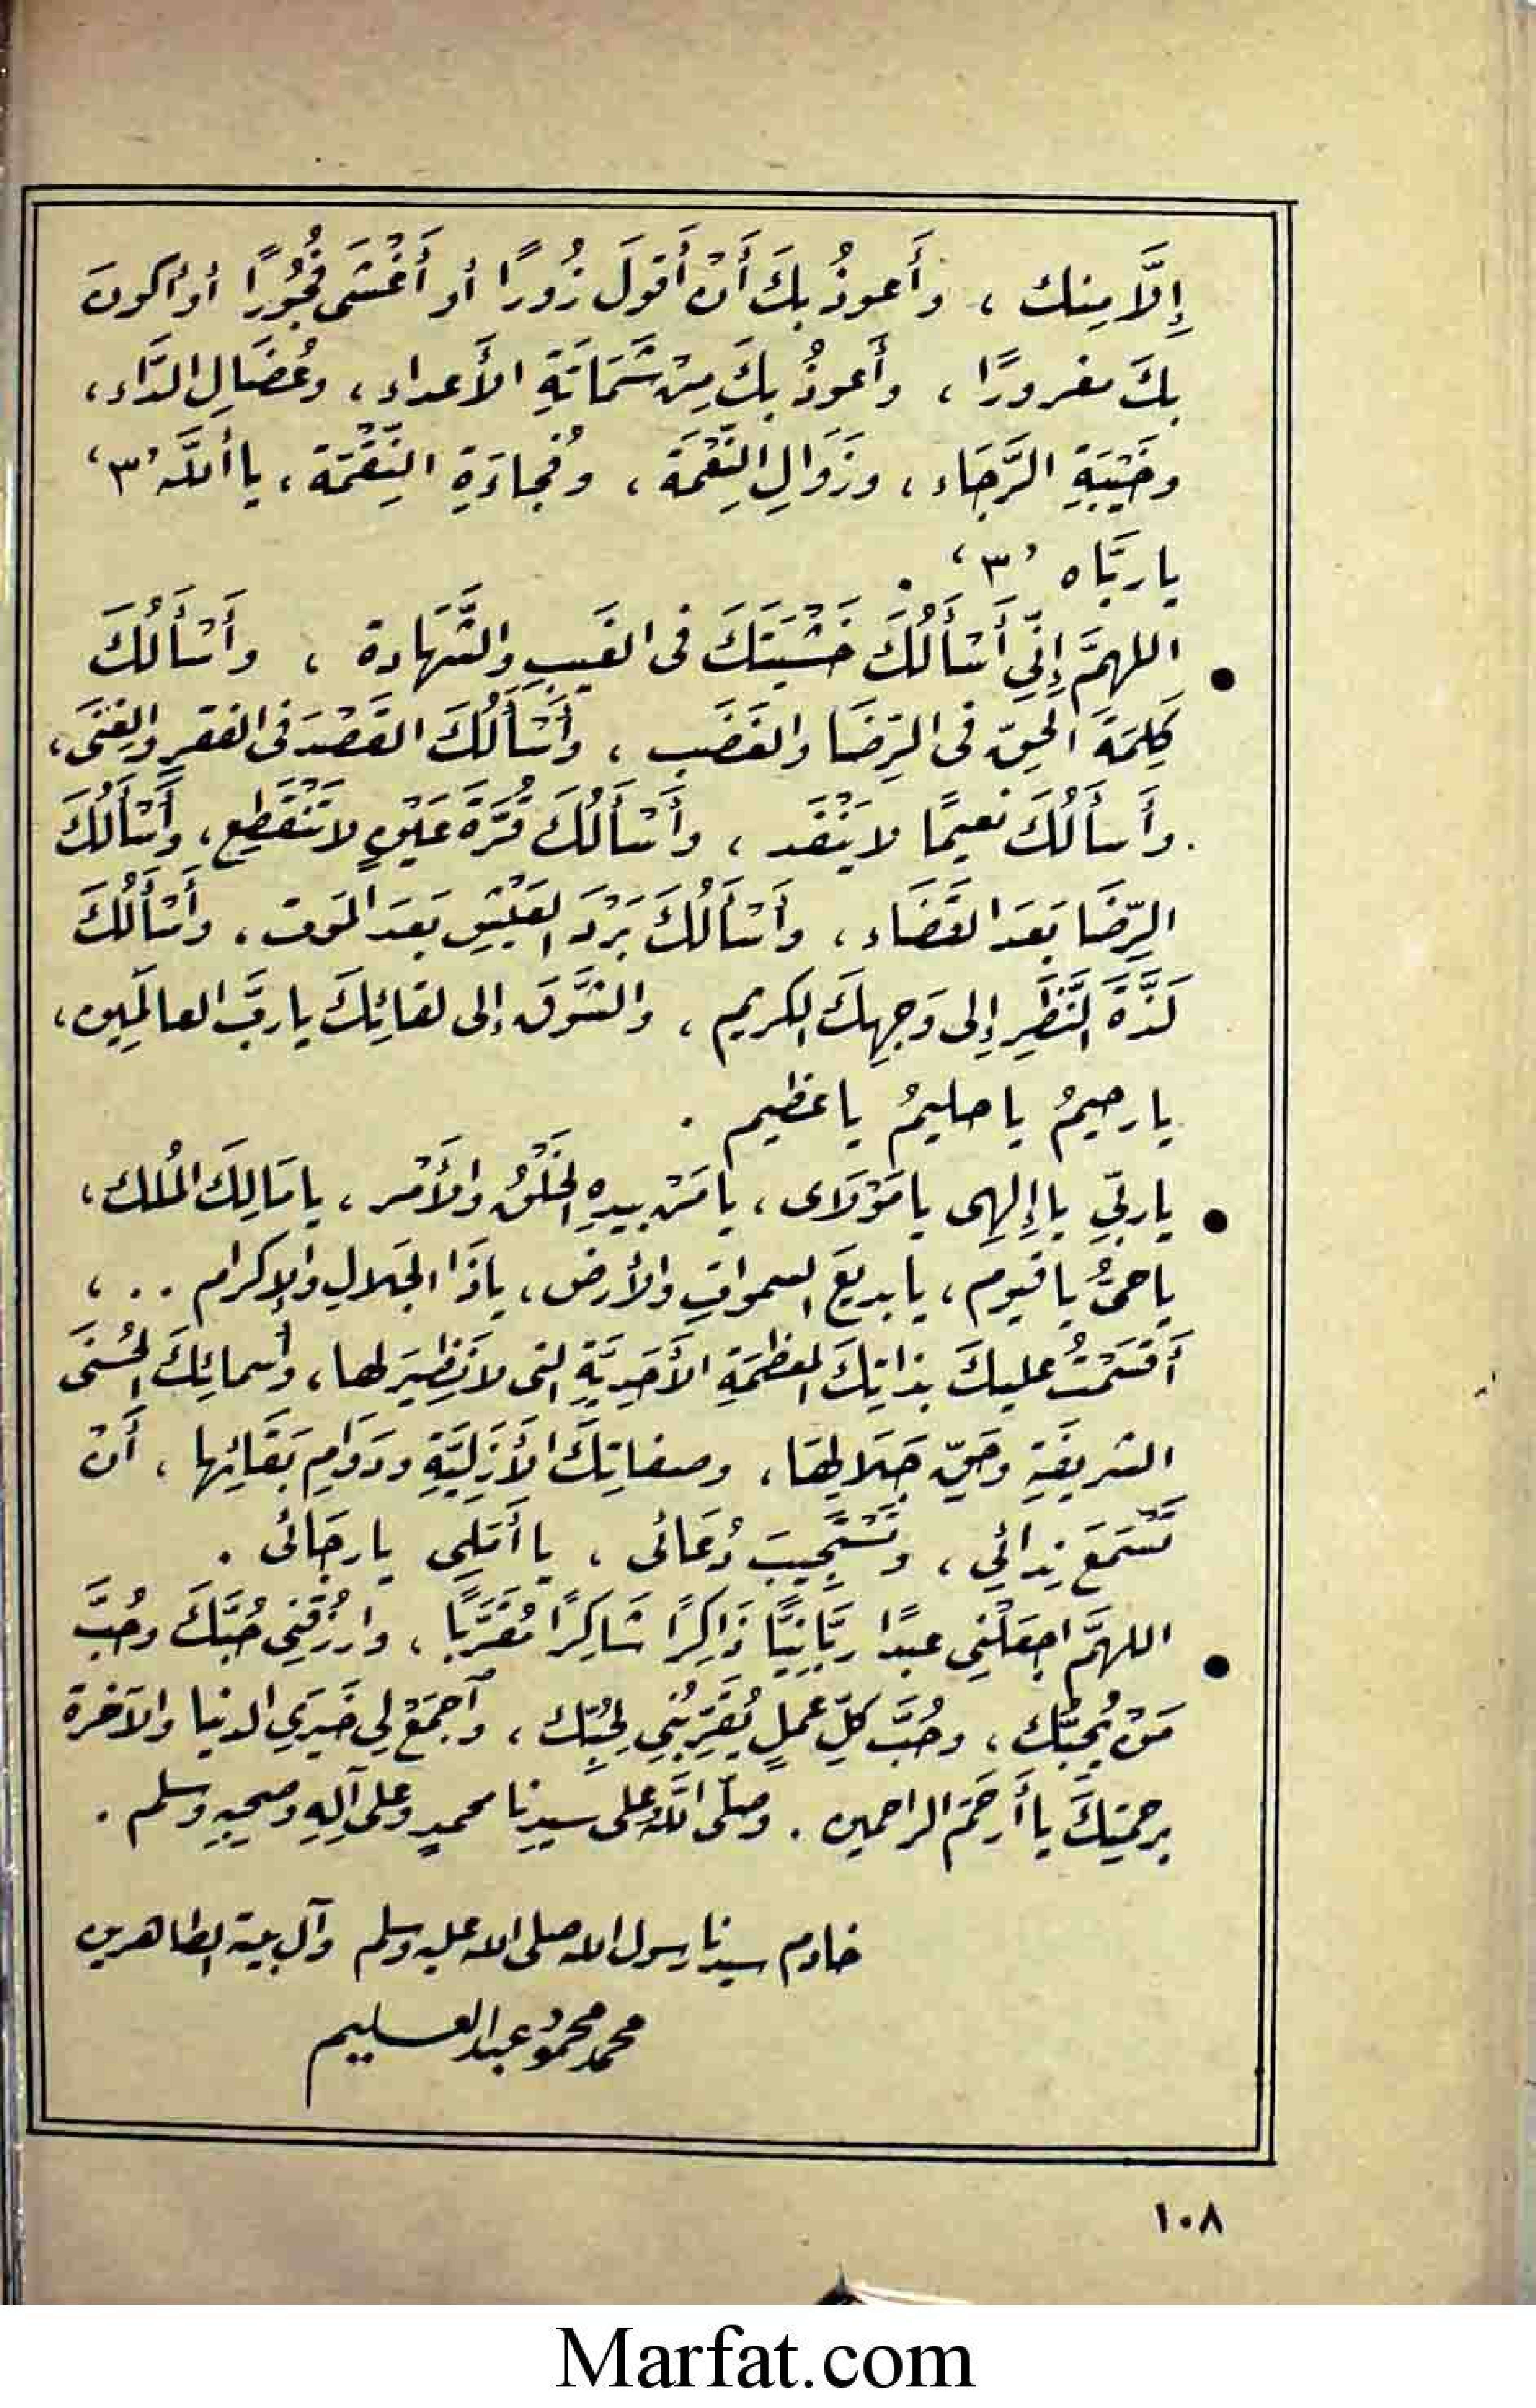 إِلَّا مِنك ، وأَعوذُ بكَ أَنْ أَقولَ زُورًا أو أَغْشَى فُجُورًا أو أكونَ
بكَ مغرورًا ، وأَعوذُ بكَ مِنْ شَمَاتَةِ الأَعداء ، وعُضَالِ الدَّاء ،
وخَيْبَةِ الرَّجَاء ، وزَوَالِ النِّعْمَة ، وفُجاءَةِ النِّقْمَة ، يا أللَّه '٣'
يا ربَّاه '٣' .
● اللهمَّ إِنِّي أَسْأَلُكَ خَشْيَتَكَ فى الغَيبِ والشَّهَادة ، وأَسْأَلُكَ
كَلِمَةَ الحَقِّ فى الرِّضَا والغَضَب ، وأَسْأَلُكَ القَصْدَ فى الفقرِ والغِنَى ،
وأَسأَلُكَ نعيمًا لا يَنْفَد ، وأَسْأَلُكَ قُرَّةَ عَيْنٍ لا تَنْقَطِع ، وأَسْأَلُكَ
الرِّضَا بَعدَ القَضَاء ، وأَسْأَلُكَ بَرْدَ العَيْشِ بَعدَ المَوت ، وأَسْأَلُكَ
لَذَّةَ النَّظَرِ إِلى وَجهِكَ الكريم ، والشَّوقَ إلى لقائِكَ يا ربَّ العالَمِين ،
يا رحيمُ يا حليمُ يا عظيم .
● يا ربِّي يا إِلهِى يا مَوْلَاى ، يا مَنْ بيدهِ الخَلْقُ والأَمْر ، يا مَالِكَ المُلك ،
يا حىُّ يا قيوم ، يا بديعَ السمواتِ والأرض ، يا ذَا الجَلالِ والإكرام . . ،
أَقسَمْتُ عليكَ بذاتِكَ المعظمَةِ الأَحَدِيَّةِ التى لا نَظِيرَ لها ، وأسمائِكَ الحُسْنَى
الشريفَةِ وحَقِّ جَلَالِهَا ، وصفاتِكَ الأَزَلِيَّةِ ودَوَامِ بَقَائِها ، أَنْ
تَسْمَعَ نِدائي ، وتَسْتَجِيبَ دُعَائى ، يا أَمَلِى يا رجَائى .
● اللهمَّ اجعَلْنِي عبدًا ربَّانِيًّا ذَاكِرًا شَاكِرًا مُقَرَّبًا ، وارْزُقْنِي حُبَّكَ وحُبَّ
مَنْ يُحِبُّك ، وحُبَّ كلِّ عَملٍ يُقَرِّبُنِي لِحُبِّك ، وآجمَعْ لي خَيرَيِ الدنيا والآخرة
برحمتِكَ يا أَرحَمَ الراحمين . وصلَّى اللَّهُ على سيدِنا محمدٍ وعلى آلِهِ وصحبِهِ وسلم .
خادم سيدنا رسول الله صلى الله عليه وسلم وآل بيته الطاهرين
محمد محمود عبد العليم
١٠٨
Marfat.com